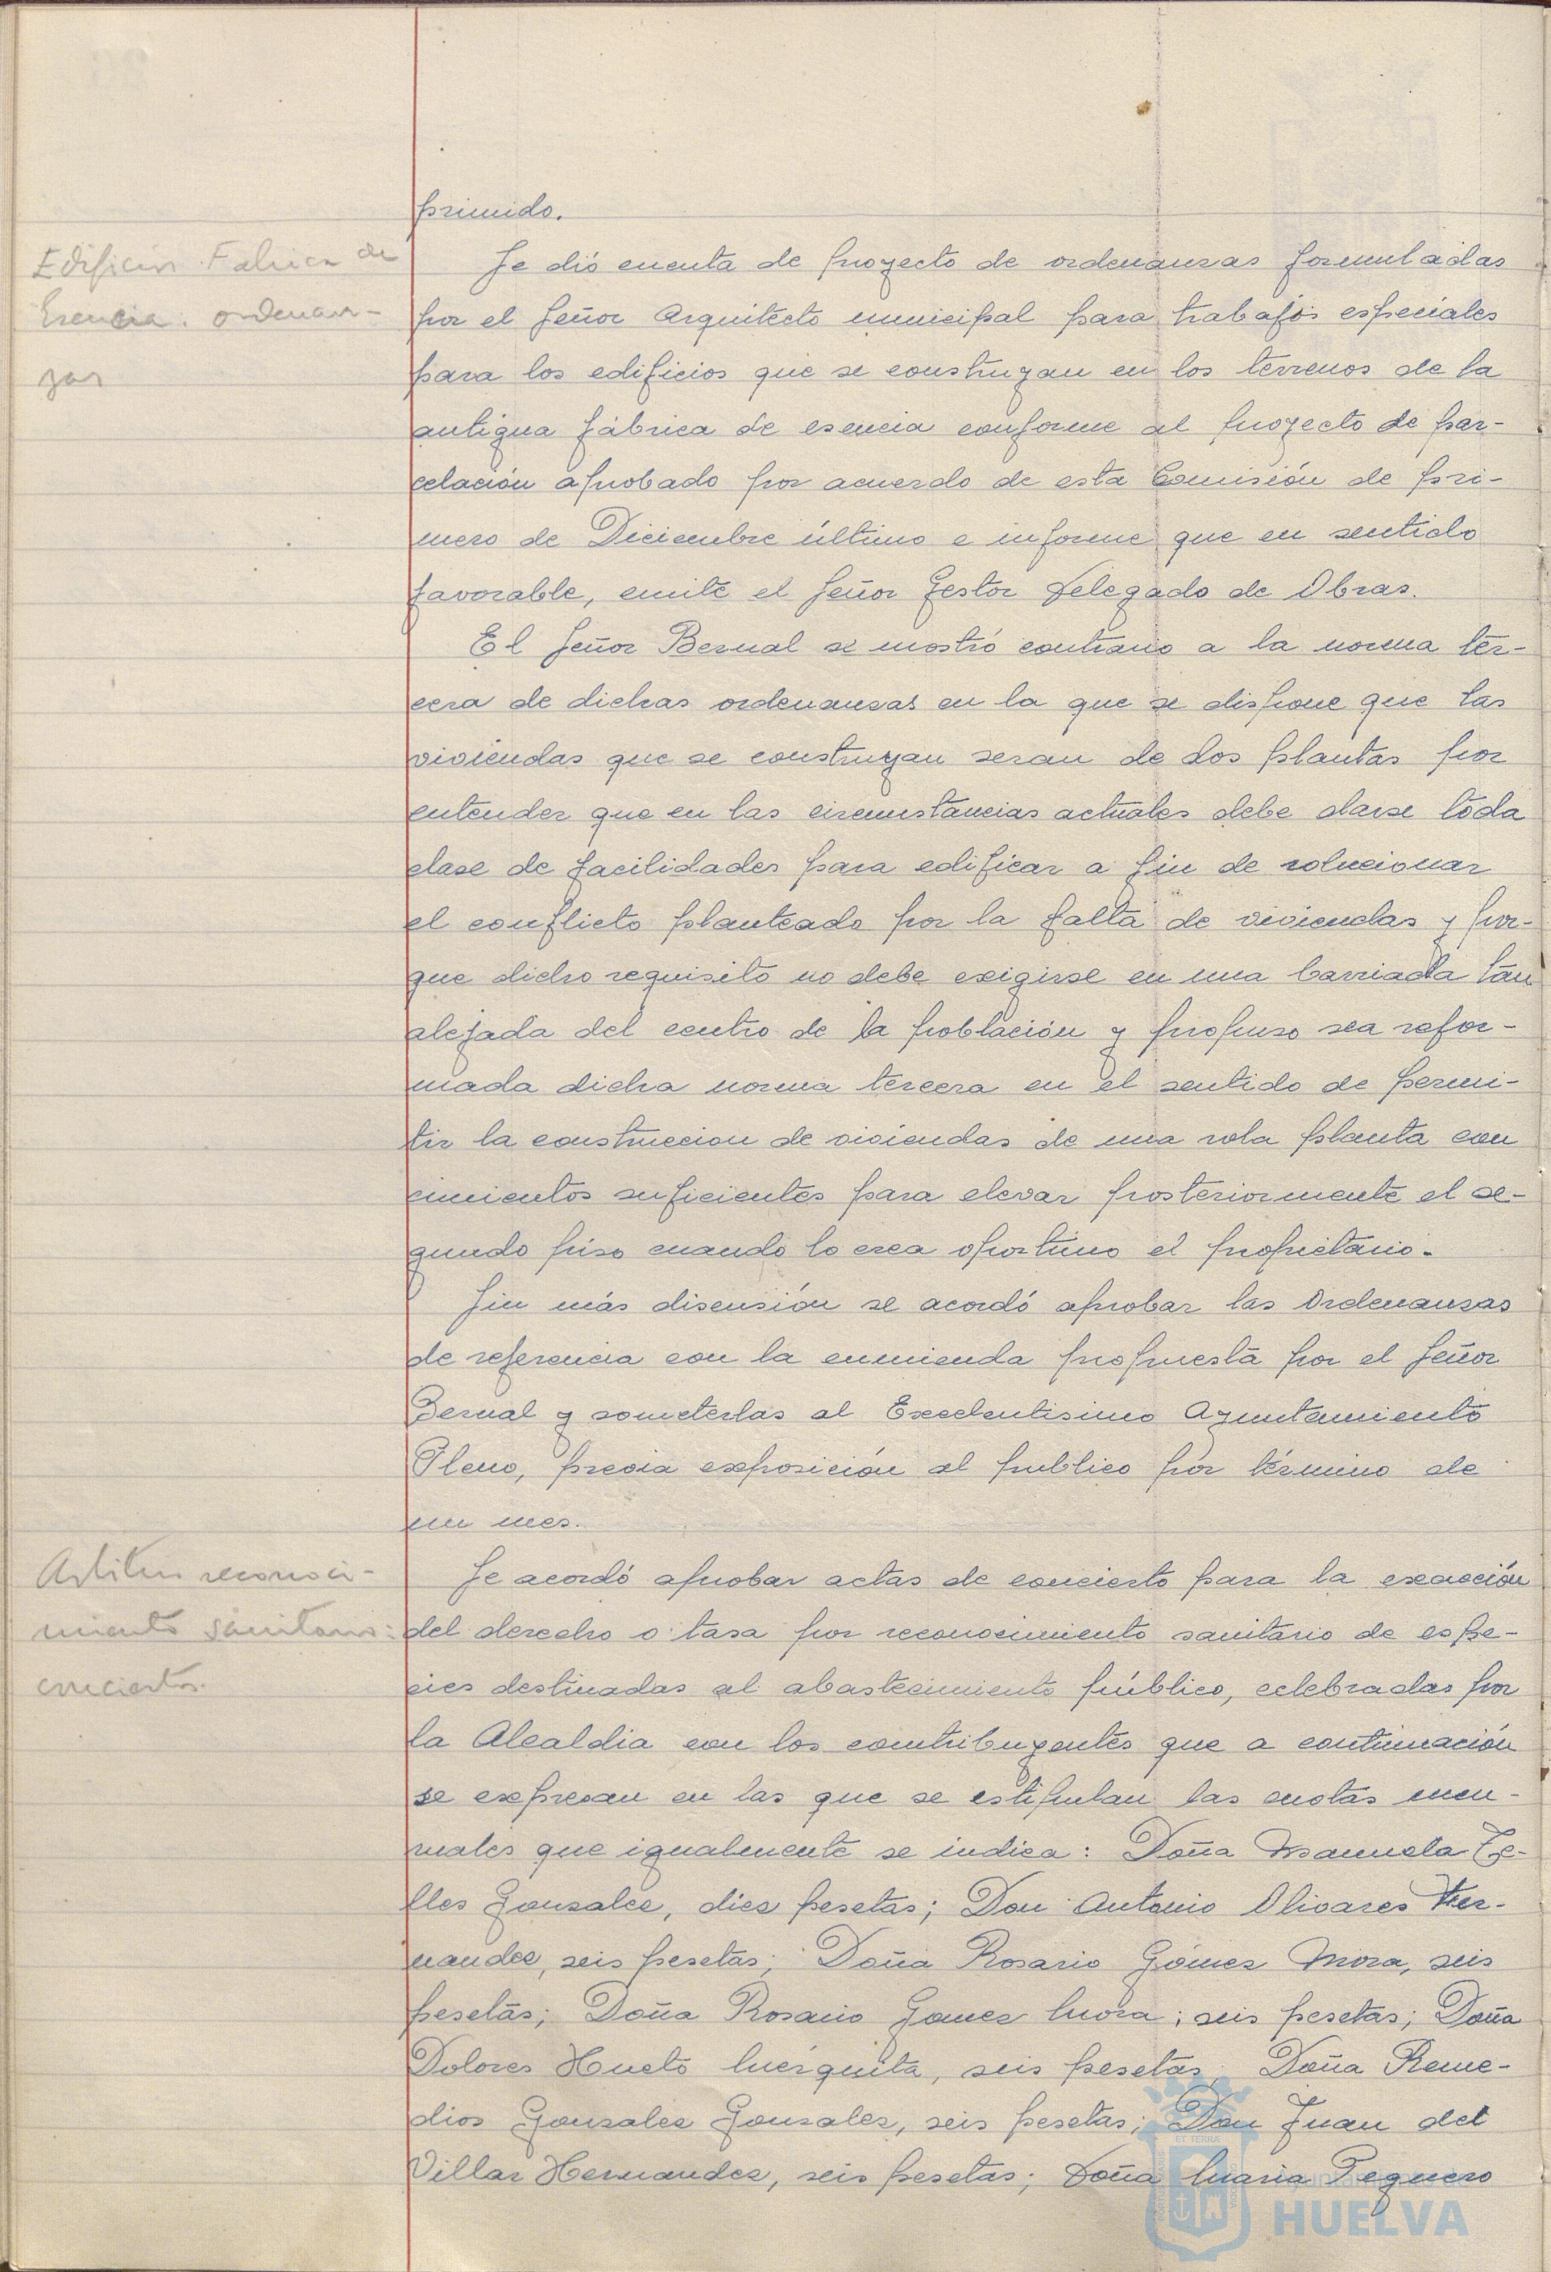 primido.
Edificion Fabrica de
Esencia. ordenan-
zas
Se dió cuenta de proyecto de ordenanzas formuladas
por el Señor Arquitecto municipal para trabajos especiales
para los edificios que se construyan en los terrenos de la
antigua fábrica de esencia conforme al proyecto de par-
celación aprobado por acuerdo de esta Comisión de pri-
mero de Diciembre último e informe que en sentido
favorable, emite el Señor Gestor Delegado de Obras.
El Señor Bernal se mostró contrario a la norma ter-
cera de dichas ordenanzas en la que se dispone que las
viviendas que se construyan seran de dos plantas por
entender que en las circunstancias actuales debe darse toda
clase de facilidades para edificar a fin de solucionar
el conflicto planteado por la falta de viviendas y por-
que dicho requisito no debe exigirse en una barriada tan
alejada del centro de la población y propuso sea refor-
mada dicha norma tercera en el sentido de permi-
tir la construccion de viviendas de una sola planta con
cimientos suficientes para elevar posteriormente el se-
gundo piso cuando lo crea oportuno el propietario.
Sin más discusión se acordó aprobar las Ordenanzas
de referencia con la enmienda propuesta por el Señor
Bernal y someterlas al Excelentisimo Ayuntamiento
Pleno, previa exposición al publico por término de
un mes.
Arbitrio reconoci-
miento sanitario:
conciertos.
Se acordó aprobar actas de concierto para la exacción
del derecho o tasa por reconocimiento sanitario de espe-
cies destinadas al abastecimiento público, celebradas por
la Alcaldia con los contribuyentes que a continuación
se expresan en las que se estipulan las cuotas men-
suales que igualmente se indica: Doña Manuela Te-
lles Gonzalez, diez pesetas; Don Antonio Olivares Her-
nandez, seis pesetas; Doña Rosario Gómez Mora, seis
pesetas; Doña Rosario Gomez Mora; seis pesetas; Doña
Dolores Hueto, seis pesetas; Doña Reme-
dios Gonzalez Gonzalez, seis pesetas; Don Juan del
Villar Hernandez, seis pesetas; Doña Maria Peguero
Ayuntamiento de
HUELVA